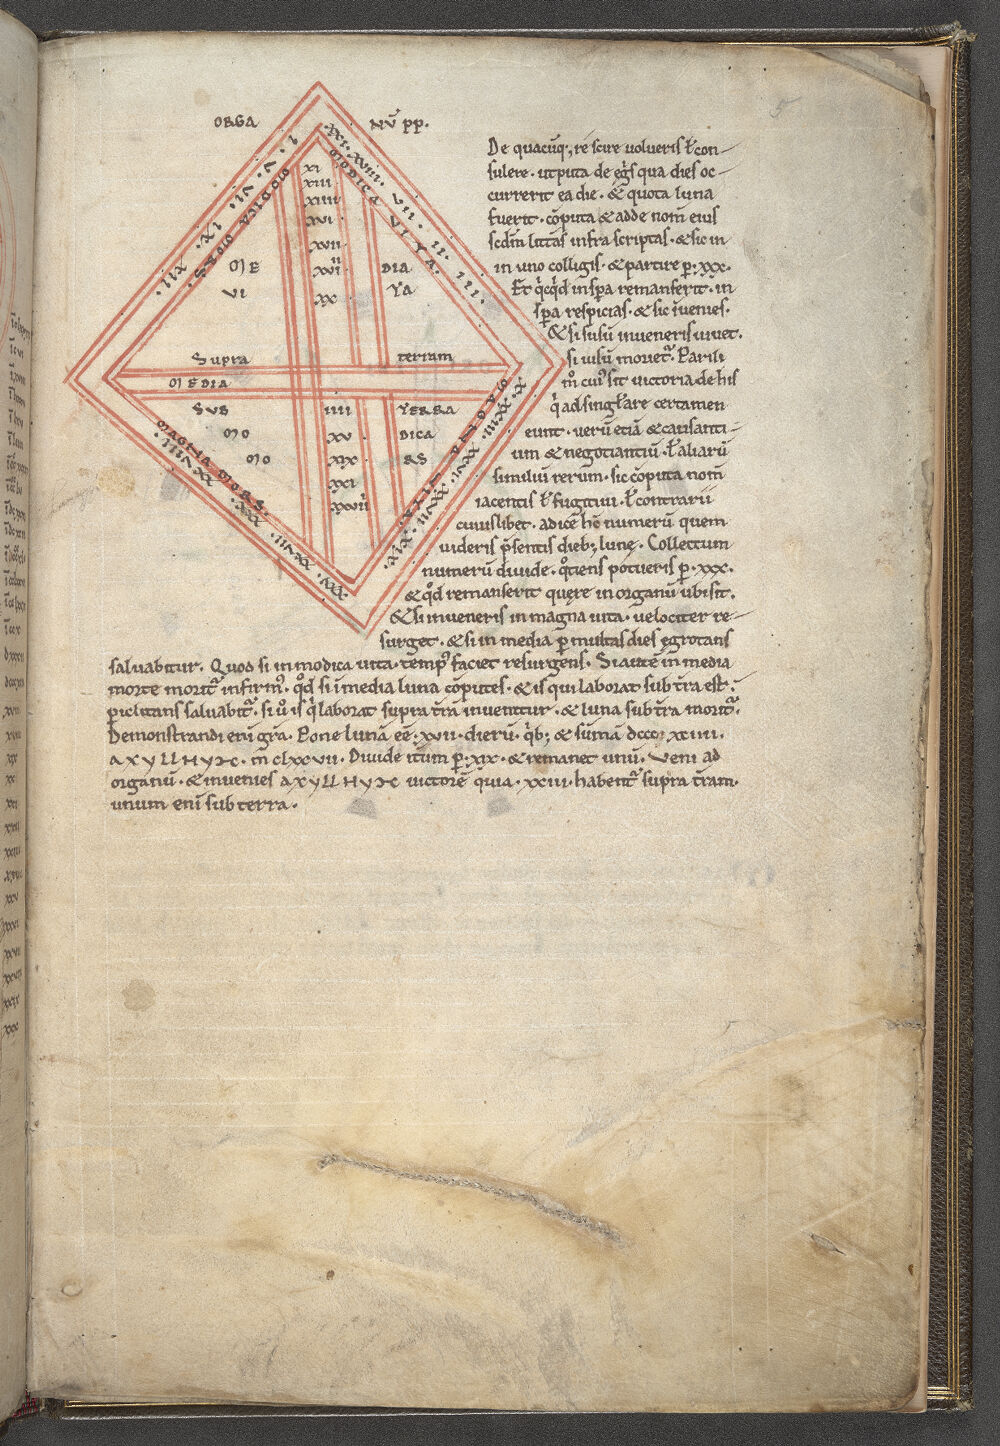 ORGA NŪ pp.
De quacūq; re scire uolueris ł con-
sulere. utputa de egris qua dies oc-
currerit ea die. & quota luna
fuerit. cōputa & adde nom̄ eius
scdm̄ litt̄as infra scriptas. & sic in
in uno colligis. & partire p. xxx.
Et q̇cq̇d in sp̄a remanserit. in
sp̄a respicias. & sic īuenies.
& si susū inueneris uiuet.
si iusū mouet̄. Parili
m̊ cui' sit uictoria de his
q̇ ad singłare certamen
eunt. uerū etiā & causanti-
um & negotiantiū. ł aliarū
similiū rerum. sic cōputa nom̄
iacentis ł fugitiui. ł contrarii
cuiuslibet. adice h̄c numerū quem
uideris p̄sentis dieb; lunę. Collectum
numerū diuide. q̊tiens potueris p. xxx.
& q̊d remanserit quęre in organū ubi sit.
& si inueneris in magna uita. uelociter re-
surget. & si in media p multas dies ęgrotans
saluabitur. Quod si in modica uita. temp' faciet resurgens. Si autē in media
morte morit̄ infirm'. q̊d si ī media luna cōputes. & is qui laborat sub t̄ra est.
piclitans saluabit̄. si ů is q̇ laborat supra t̄rā inuenitur. & luna sub t̄ra morit̄.
Demonstrandi eni gra. Pone lunā eē. xvii. dierū. q̇b; & sūmā dccc. xciiii.
m̄ clxxvii. Diuide itum p. xix. & remanet unū. Veni ad
organū. & inuenies uictorē quia. xxiii. habent̄ supra t̄ram.
unum eni sub terra.
I. V. VI. IX. XII.
MODICA MORS
XI
XIII
XIIII
XVI
XVII
XX
MODICA VITA.
VII. II. III.
ME DIA
VI TA
Supra terram
MEDIA
SUB TERRA
MO DICA
MO RS
IIII
XV
XIX
XXI
MAGNA MORS.
MAGNA VITA.